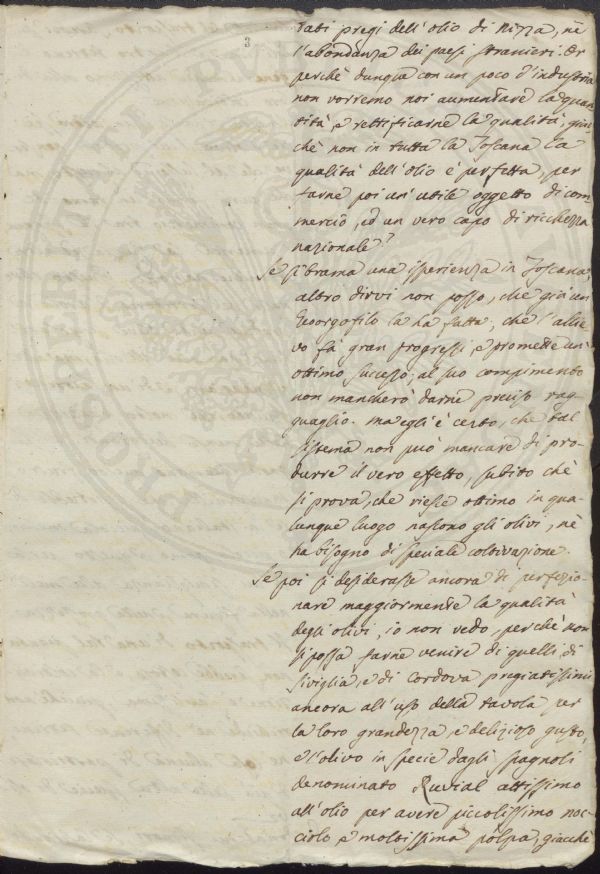 tati pregi dell'olio di Nizza, nè
l'abondanza dei paesi stranieri. Or
perchè dunque con un poco d'industria
non vorremo noi aumentare la quan
tità, e rettificarne la qualità, giac
chè non in tutta la Toscana la
qualità dell'olio è perfetta, per
farne poi un'utile oggetto di com
mercio, ed un vero capo di ricchezza
nazionale?
Se si brama una isperienza in Toscana,
altro dirvi non posso, che già un
Georgofilo la ha fatta, che l'allie
vo fà gran progressi, e promette un'
ottimo sucesso; al suo compimento
non mancherò darne preciso rag
guaglio. Ma egli è certo, che tal
sistema non può mancare di pro-
durre il vero effetto, subito che
si prova, che riesce ottimo in qua-
lunque luogo nascono gli olivi, nè
ha bisogno di speciale coltivazione.
Se poi si desiderasse ancora di perfezio-
nare maggiormente la qualità
degli olivi, io non vedo, perchè non
si possa farne venire di quelli di
Siviglia, e di Cordova pregiatissimi
ancora all'uso della tavola per
la loro grandezza, e delizioso gusto,
e l'olivo in specie dagli spagnoli
denominato Ruvial attissimo
all'olio per avere piccolissimo noc-
ciolo e moltissima polpa, giacchè
PROSPERITATI PUBLICAE